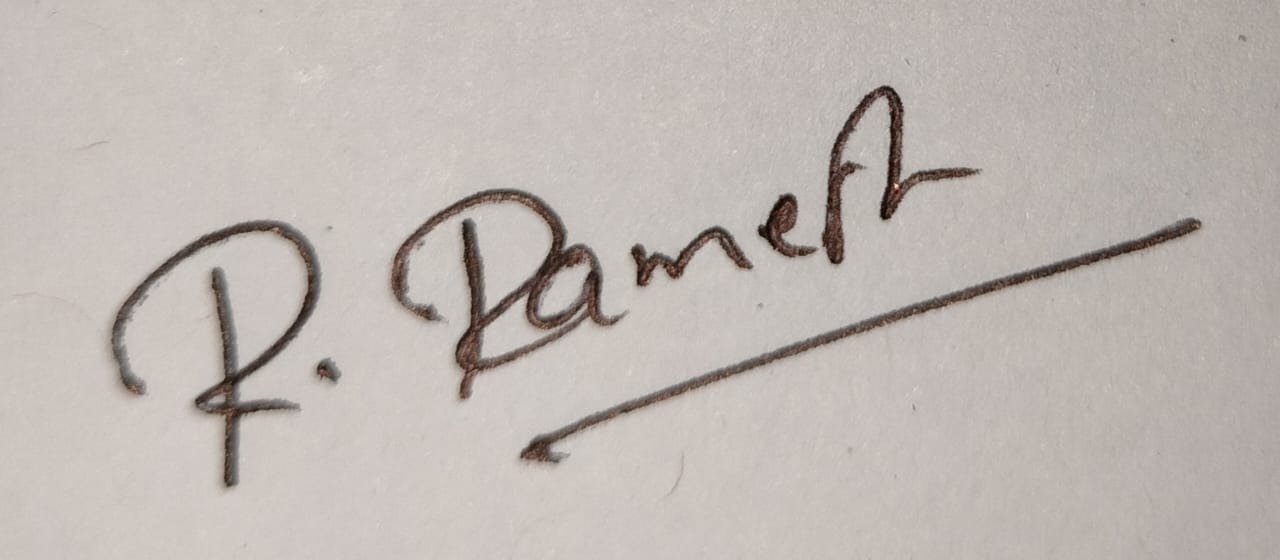 R. Ramesh